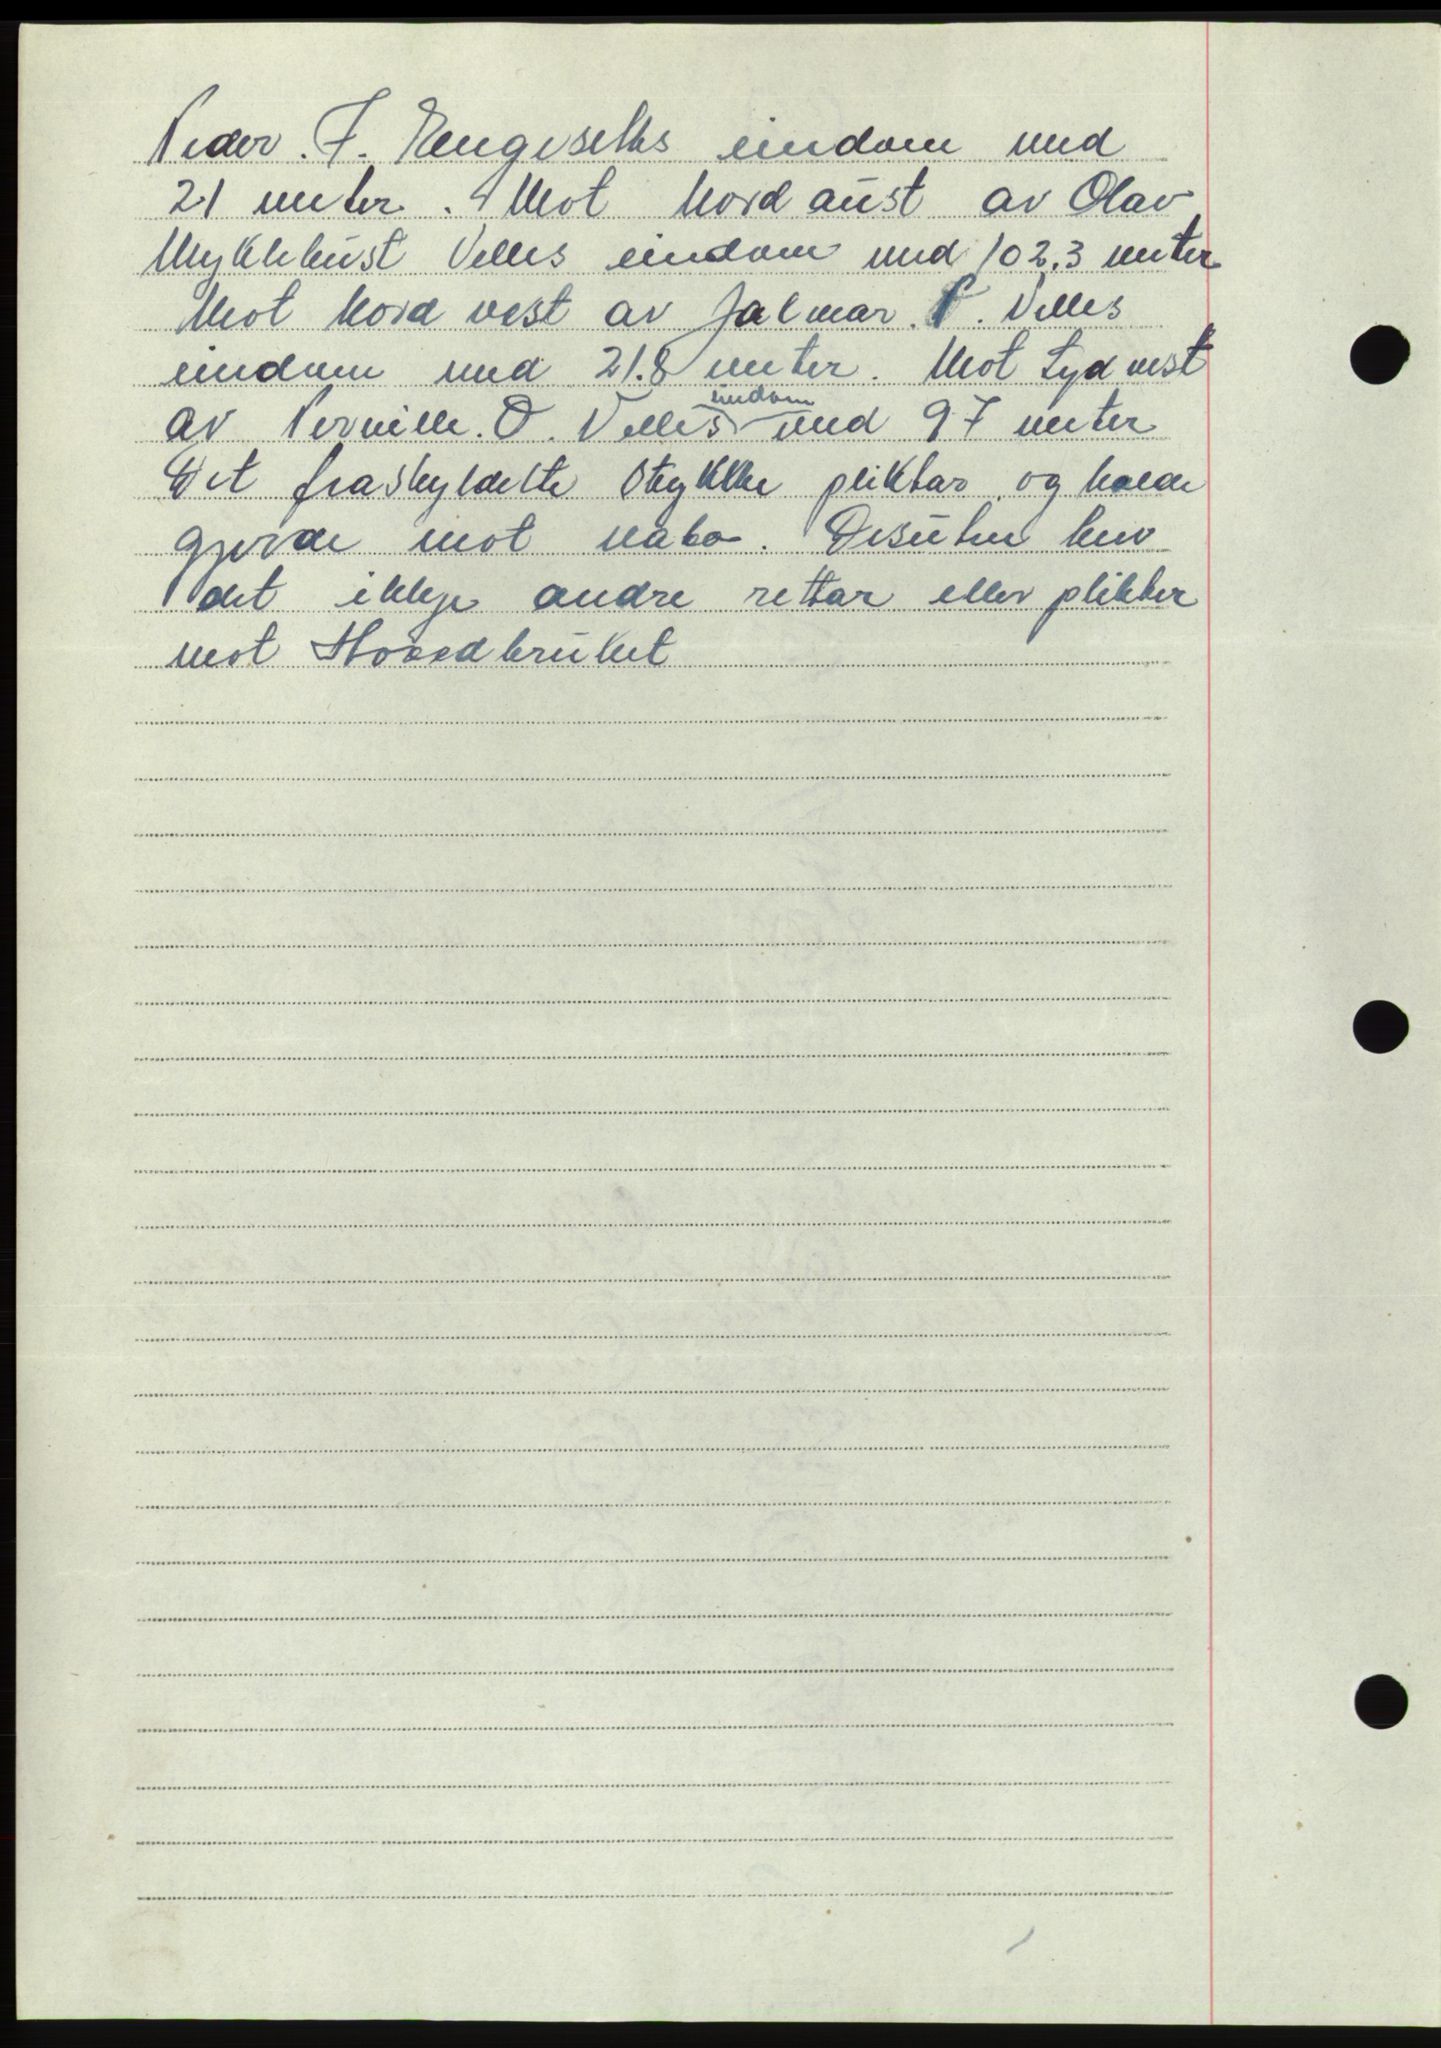 Peder. F. Engesetts eindom med
21 meter. Mot Nord aust av Olav
Myklebust Velles eindom med 102.3 meter
Mot Nord vest av Jalmar. P. Velles
eindom med 21.8 meter. Mot syd vest
av Pernille. O. Velles eindom med 97 meter
Det fraskyldelte stykkke pliktar og halde
gjerde mot nabo. Desuten hev
det ikkje andre rettar eller plikter
mot Hovedbruket